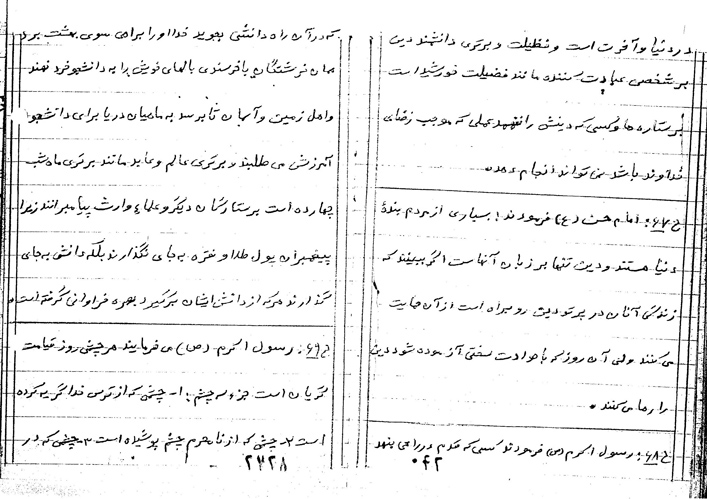 در دنیا و آخرت است و فظیلت و برتری دانشمند دین
بر شخص عبادت کننده مانند فضیلت خورشید است
بر ستاره ها و کسی که دینش را نفهمد عملی که موجب رضای
خداوند باشد نمی تواند انجام دهد.
ح ۶۷: امام حسن (ع) فرمودند: بسیاری از مردم بندهٔ
دنیا هستند و دین تنها بر زبان آنهاست اگر ببینند که
زندگی آنان در پرتو دین رو براه است از آن حمایت
می کنند ولی آن روز که با حوادث سختی آزموده شود دین
را رها می کنند.
ح ۶۸: رسول اکرم (ص) فرمودند کسی که قدم در راهی بنهد
۰۴۲
که در آن راه دانشی بجوید خدا او را براهی سوی بهشت برد
همان فرشتگان با خرسندی بالهای خویش را به دانشجو خرد نهند
و اهل زمین و آسمان تا برسد به ماهیان دریا برای دانشجو
آمرزش می طلبند و برتری عالم و عابد مانند برتری ماه شب
چهارده است بر ستارگان دیگر و علماء وارث پیامبرانند زیرا
پیغمبران پول طلا و نقره به جای نگذارند بلکه دانش به جای
گذارند هر که از دانش ایشان برگیرد بهره فراوانی گرفته است.
ح ۶۹: رسول اکرم (ص) می فرمایند هر چشمی روز قیامت
گریان است جزء سه چشم: ۱- چشمی که از ترس خدا گریه کرده
است ۲- چشمی که از نامحرم چشم پوشیده است ۳- چشمی که در
۲۷۲۸